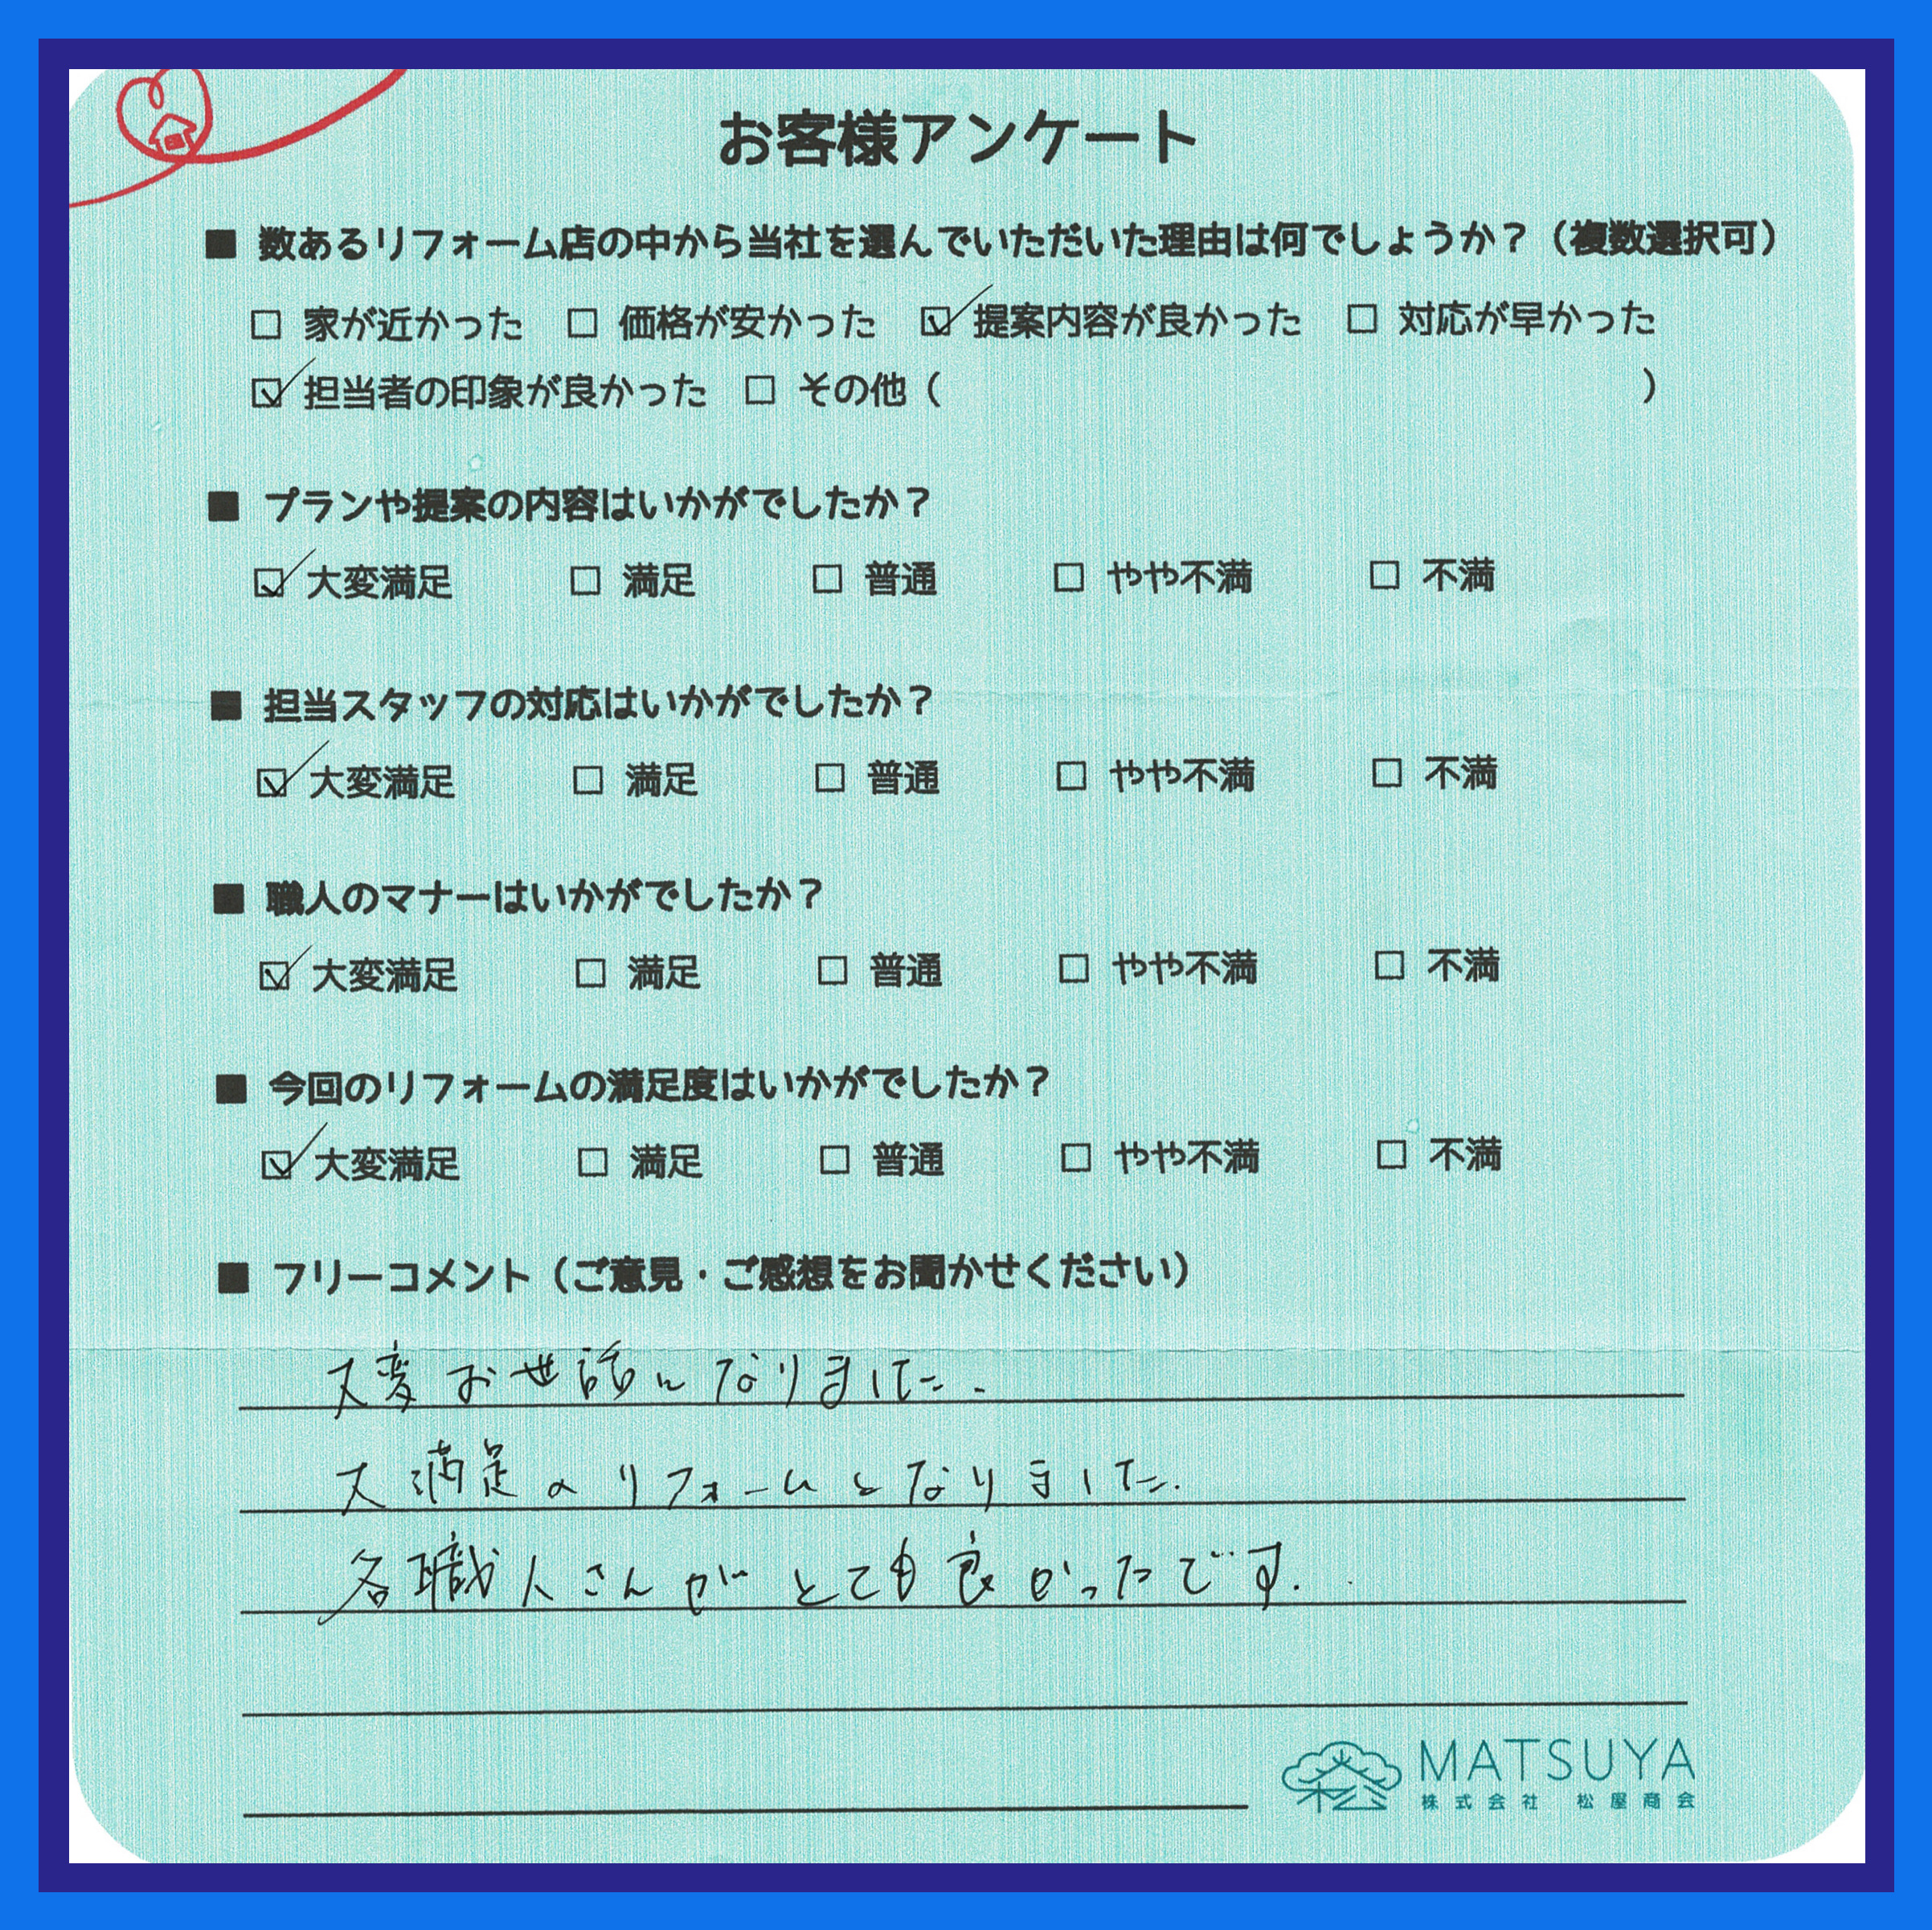 お客様アンケート
■ 数あるリフォーム店の中から当社を選んでいただいた理由は何でしょうか？（複数選択可）
□ 家が近かった □ 価格が安かった ☑ 提案内容が良かった □ 対応が早かった
☑ 担当者の印象が良かった □ その他（ ）
■ プランや提案の内容はいかがでしたか？
☑ 大変満足 □ 満足 □ 普通 □ やや不満 □ 不満
■ 担当スタッフの対応はいかがでしたか？
☑ 大変満足 □ 満足 □ 普通 □ やや不満 □ 不満
■ 職人のマナーはいかがでしたか？
☑ 大変満足 □ 満足 □ 普通 □ やや不満 □ 不満
■ 今回のリフォームの満足度はいかがでしたか？
☑ 大変満足 □ 満足 □ 普通 □ やや不満 □ 不満
■ フリーコメント（ご意見・ご感想をお聞かせください）
大変お世話になりました.
大満足のリフォームとなりました.
各職人さんがとても良かったです.
MATSUYA
株式会社 松屋商会